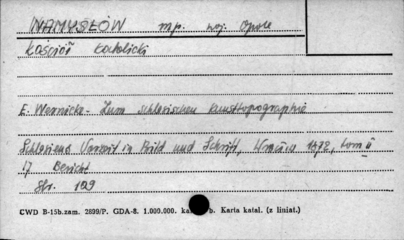 NAMYSŁÓW mp. woj. Opole
Kościół katolicki
E. Wernicke - Zum schlesischen Kunsttopographie
Schlesiens Vorzeit in Bild und Schrift, 1872, tom II
17 Bericht
Str. 109
CWD B-15b.zam. 2899/P. GDA-8. 1.000.000. Karta katal. (z liniat.)